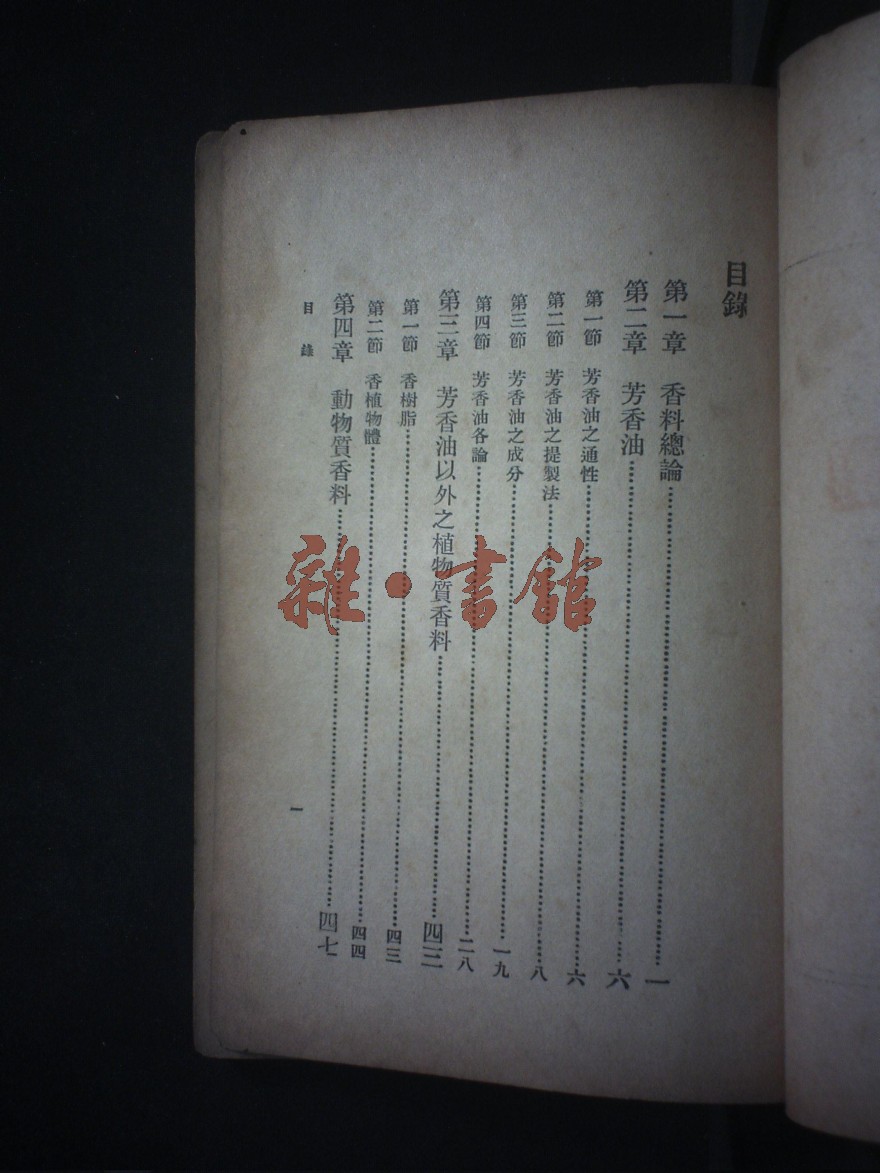 目錄
第一章 香料總論……一
第二章 芳香油……六
第一節 芳香油之通性……六
第二節 芳香油之提製法……八
第三節 芳香油之成分……一九
第四節 芳香油各論……二八
第三章 芳香油以外之植物質香料……四三
第一節 香樹脂……四三
第二節 香植物體……四四
第四章 動物質香料……四七
目錄
一
雜·書館